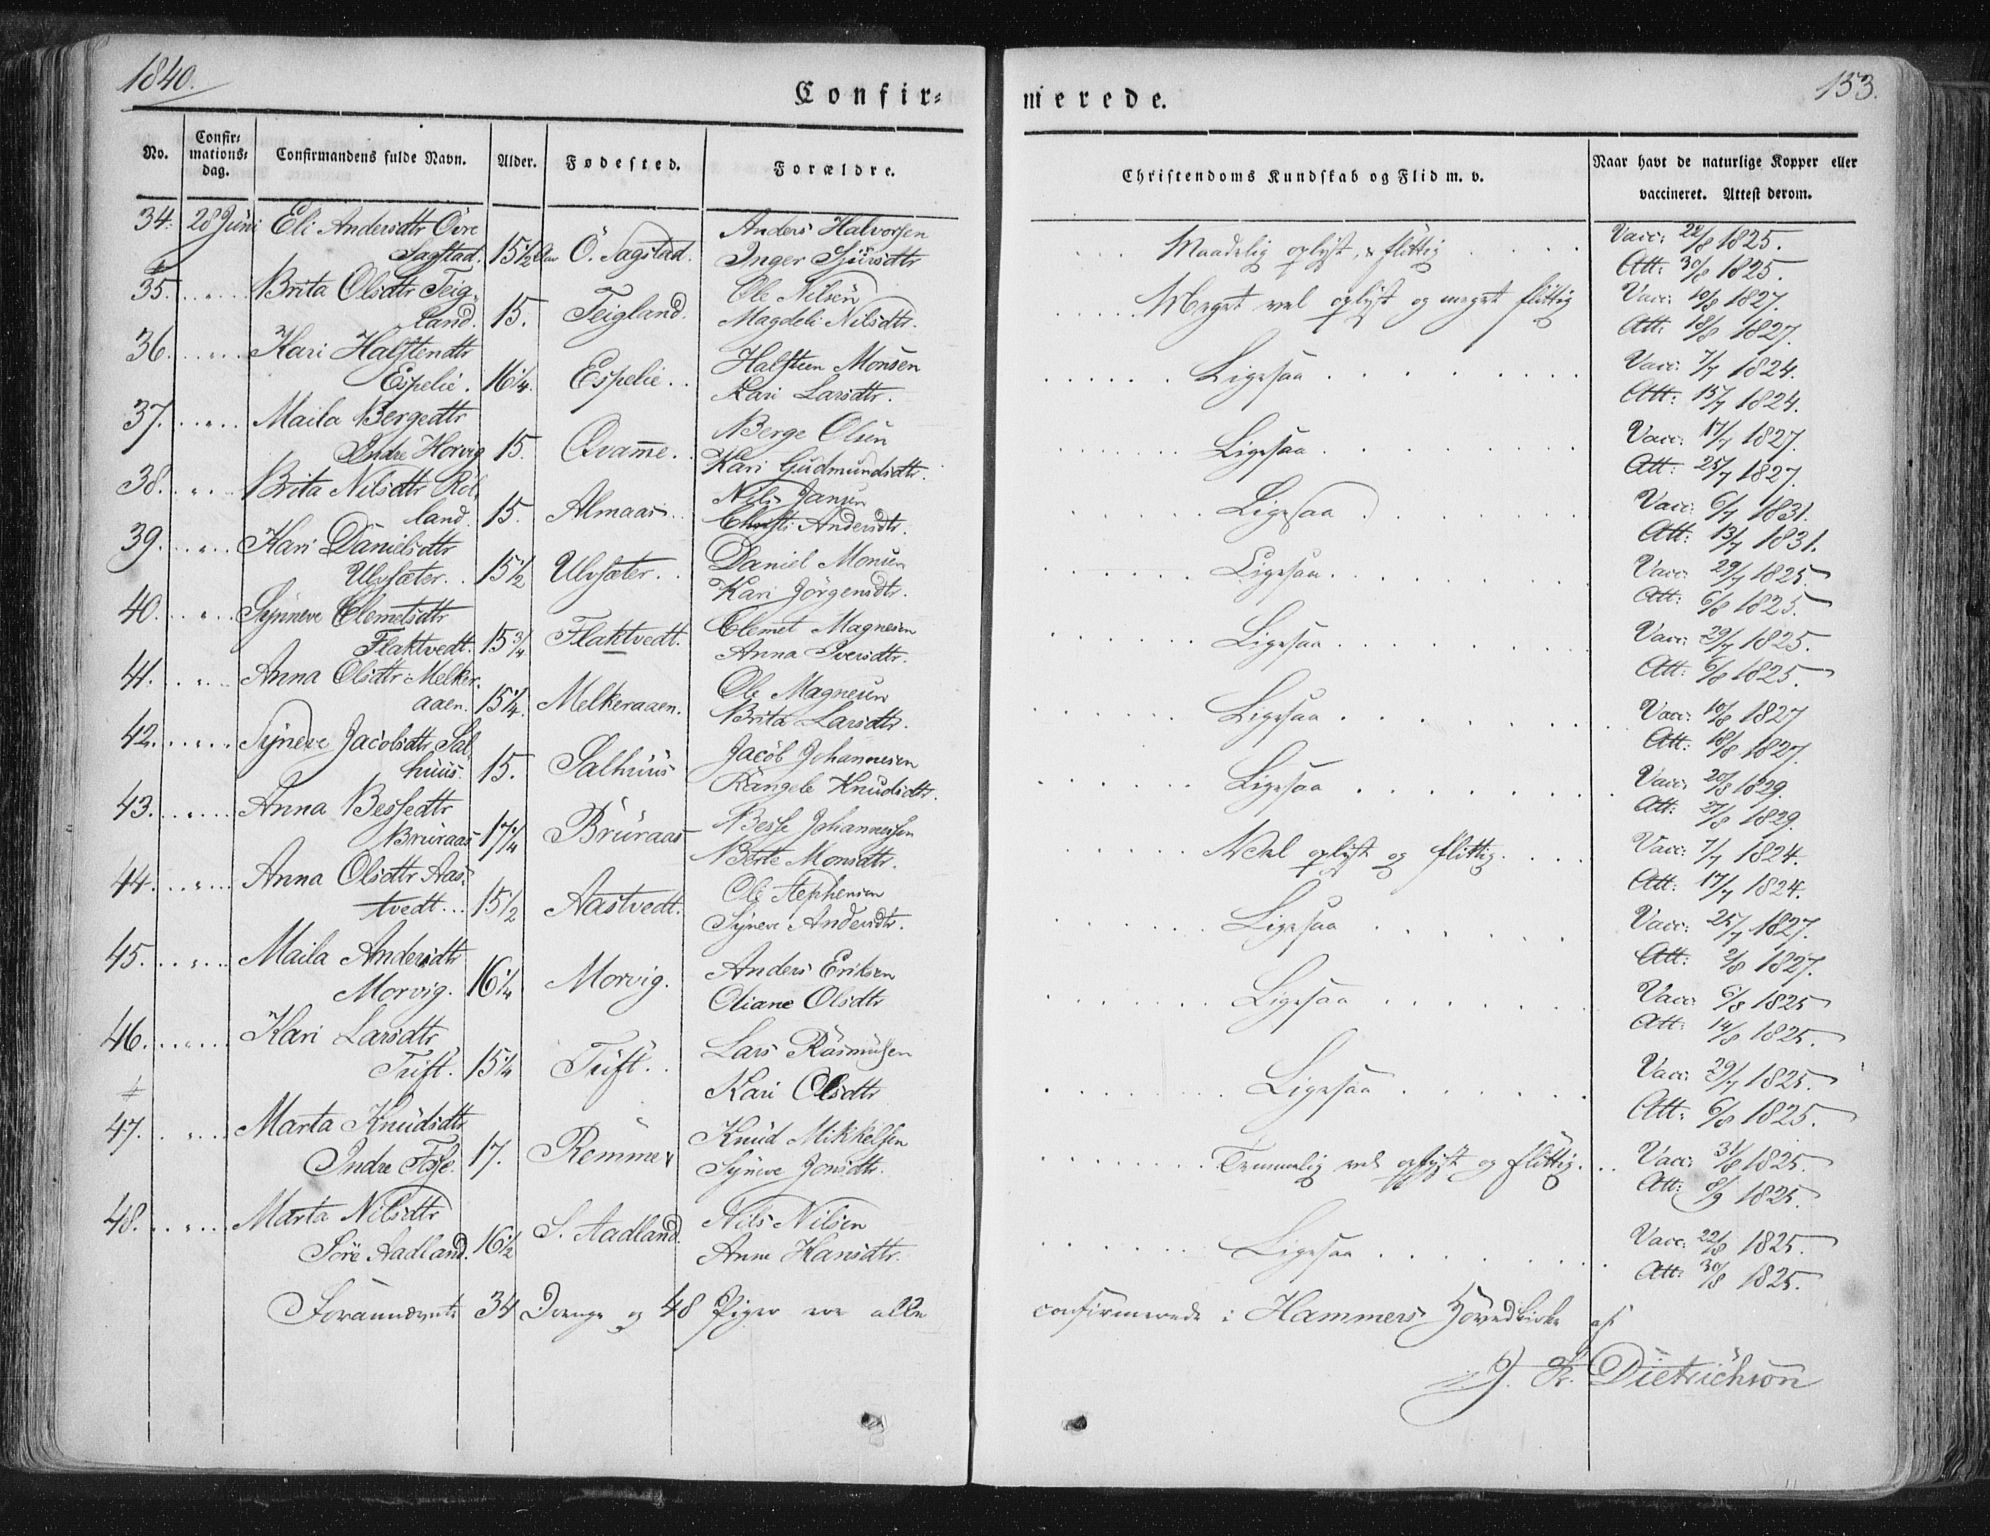 1840.
153.
Confir=
merede.
No.
Confir=
mations=
dag.
Confirmandens fulde Navn.
Alder.
Fødested.
Forældre.
Christendoms Kundskab og Flid m. v.
Naar havt de naturlige Kopper eller
vaccineret. Attest derom.
34. 28 Juni Eli Andersdtr Övre Anders Halvorsen Vacc: 22/8 1825.
Sagstad. 15 1/2 Aar Ö. Sagstad. Inger Sjursdtr Maadelig oplyst, & flittig Att: 30/8 1825.
35. " Brita Olsdtr Teig- Ole Nilsen Meget vel oplyst og meget flittig Vacc: 10/8 1827.
land. 15. Teigland. Magdeli Nilsdtr. Att: 18/8 1827.
36. " Kari Halstendtr Halsteen Monsen Vacc: 7/7 1824.
Espelie. 16 1/4. Espelie. Kari Larsdtr. Ligesaa Att: 15/7 1824.
37. " Maila Bergedtr Berge Olsen Vacc: 17/7 1827.
Indre Horvig 15. Qvamme. Kari Gudmundsdtr. Ligesaa Att: 25/7 1827.
38. " Brita Nilsdtr Röl- Nils Jansen Vacc: 6/7 1831.
land. 15. Almaas. Christi Andersdtr. Ligesaa Att: 13/7 1831.
39. " Kari Danielsdtr Daniel Monsen Vacc: 29/7 1825.
Ulvsæter. 15 1/2 Ulvsæter. Kari Jörgensdtr. Ligesaa Att: 6/8 1825.
40. " Synneve Clemetsdtr Clemet Magnesen Vacc: 29/7 1825.
Flaktvedt. 15 3/4 Flaktvedt. Anna Iversdtr. Ligesaa Att: 6/8 1825.
41. " Anna Olsdtr Melker- Ole Magnesen Vacc: 10/8 1827
aaen. 15 1/4. Melkeraaen. Brita Larsdtr. Ligesaa Att: 18/8 1827.
42. " Syneve Jacobsdtr Sal- Jacob Johannesen Vacc: 20/8 1829.
huus. 15. Salhuus Rangele Knudsdtr. Ligesaa Att: 27/8 1829.
43. " Anna Bessedtr Besse Johannessen Vacc: 7/7 1824.
Bruraas 17 1/4 Bruraas Berte Monsdtr. Vel oplyst og flittig. Att: 17/7 1824.
44. " Anna Olsdtr Aas- Ole Stephensen Vacc: 25/7 1827.
tvedt. 15 1/2 Aastvedt. Syneve Andersdtr. Ligesaa Att: 2/8 1827.
45. " Maila Andersdtr Anders Eriksen Vacc: 6/8 1825
Morvig. 16 1/4 Morvig. Oliane Olsdtr Ligesaa Att: 14/8 1825.
46. " Kari Larsdtr Lars Rasmusen Vacc: 29/7 1825.
Tuft. 15 1/4 Tuft. Kari Olsdtr Ligesaa Att: 6/8 1825.
47. " Marta Knudsdtr Knud Mikkelsen Vacc: 31/8 1825.
Indre Fosse. 17. Romme Syneve Jonsdtr. Temmelig vel oplyst og flittig. Att: 8/9 1825.
48. " Marta Nilsdtr Nils Nilsen Vacc: 22/8 1825.
Söre Aadland. 16 1/2 S. Aadland. Anne Hansdtr. Ligesaa Att: 30/8 1825.
Forannævnte 34 Drenge og 48 Piger ere alle confirmerede i Hammers Hovedkirke af
J. Fr. Dietrichson